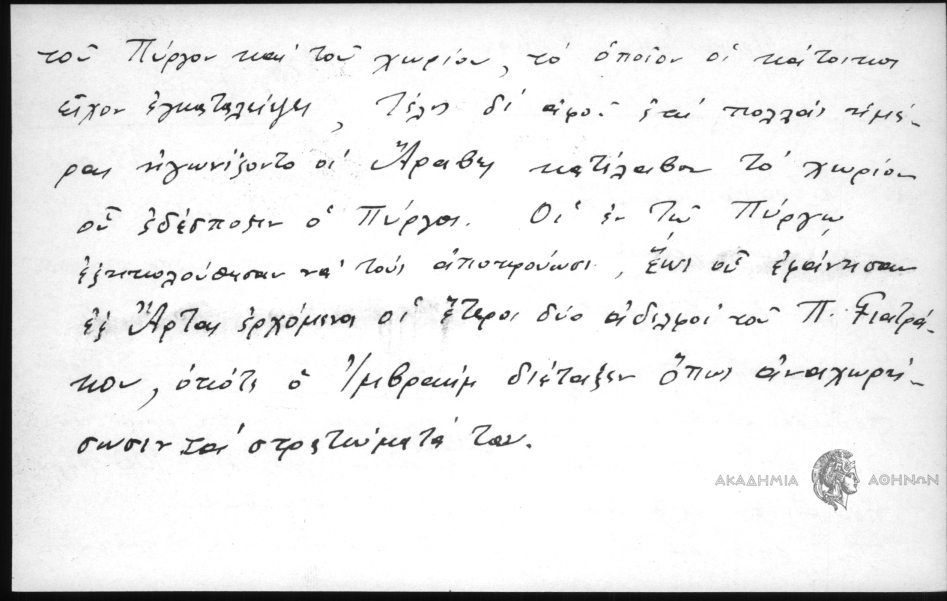 τοῦ Πύργου καὶ τοῦ χωρίου, τὸ ὁποῖον οἱ κάτοικοι
εἶχον ἐγκαταλείψει, Τέλος δὲ ἀφοῦ ἐπὶ πολλὰς ἡμέ-
ρας ἠγωνίζοντο οἱ Ἄραβες κατέλαβον τὸ χωρίον
οὗ ἐδέσποζεν ὁ Πύργος. Οἱ ἐν τῷ Πύργῳ
ἐξηκολούθησαν νὰ τοὺς ἀποκρούωσι, ἕως οὗ ἐφάνησαν
ἐξ Ἄρτας ἐρχόμενοι οἱ ἕτεροι δύο ἀδελφοὶ τοῦ Π. Γιατρά-
κου, ὁπότε ὁ Ἰμβραὴμ διέταξεν ὅπως ἀναχωρή-
σωσιν τὰ στρατεύματά του.
ΑΚΑΔΗΜΙΑ ΑΘΗΝΩΝ